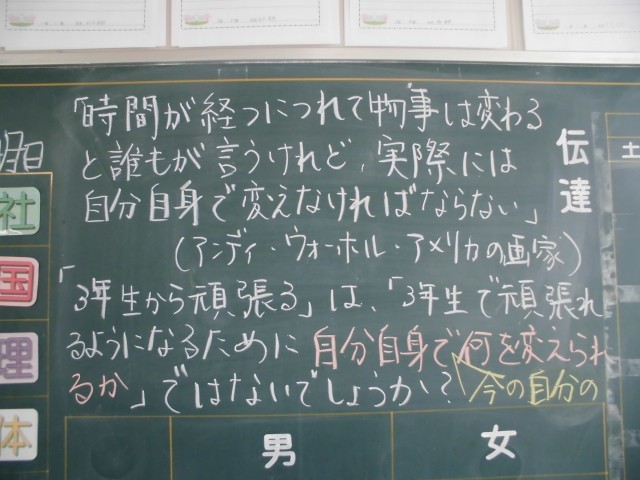 「時間が経つにつれて物事は変わる
と誰もが言うけれど、実際には
自分自身で変えなければならない」
(アンディ・ウォーホル・アメリカの画家)
「3年生から頑張る」は、「3年生で頑張れ
るようになるために自分自身で何を変えられ
るか」ではないでしょうか?
今の自分の
伝達
明日
社
国
理
体
土
男
女